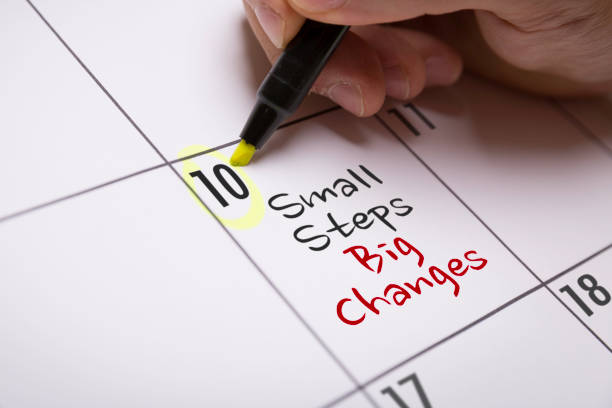 10
11
Small
Steps
Big
Changes
17
18